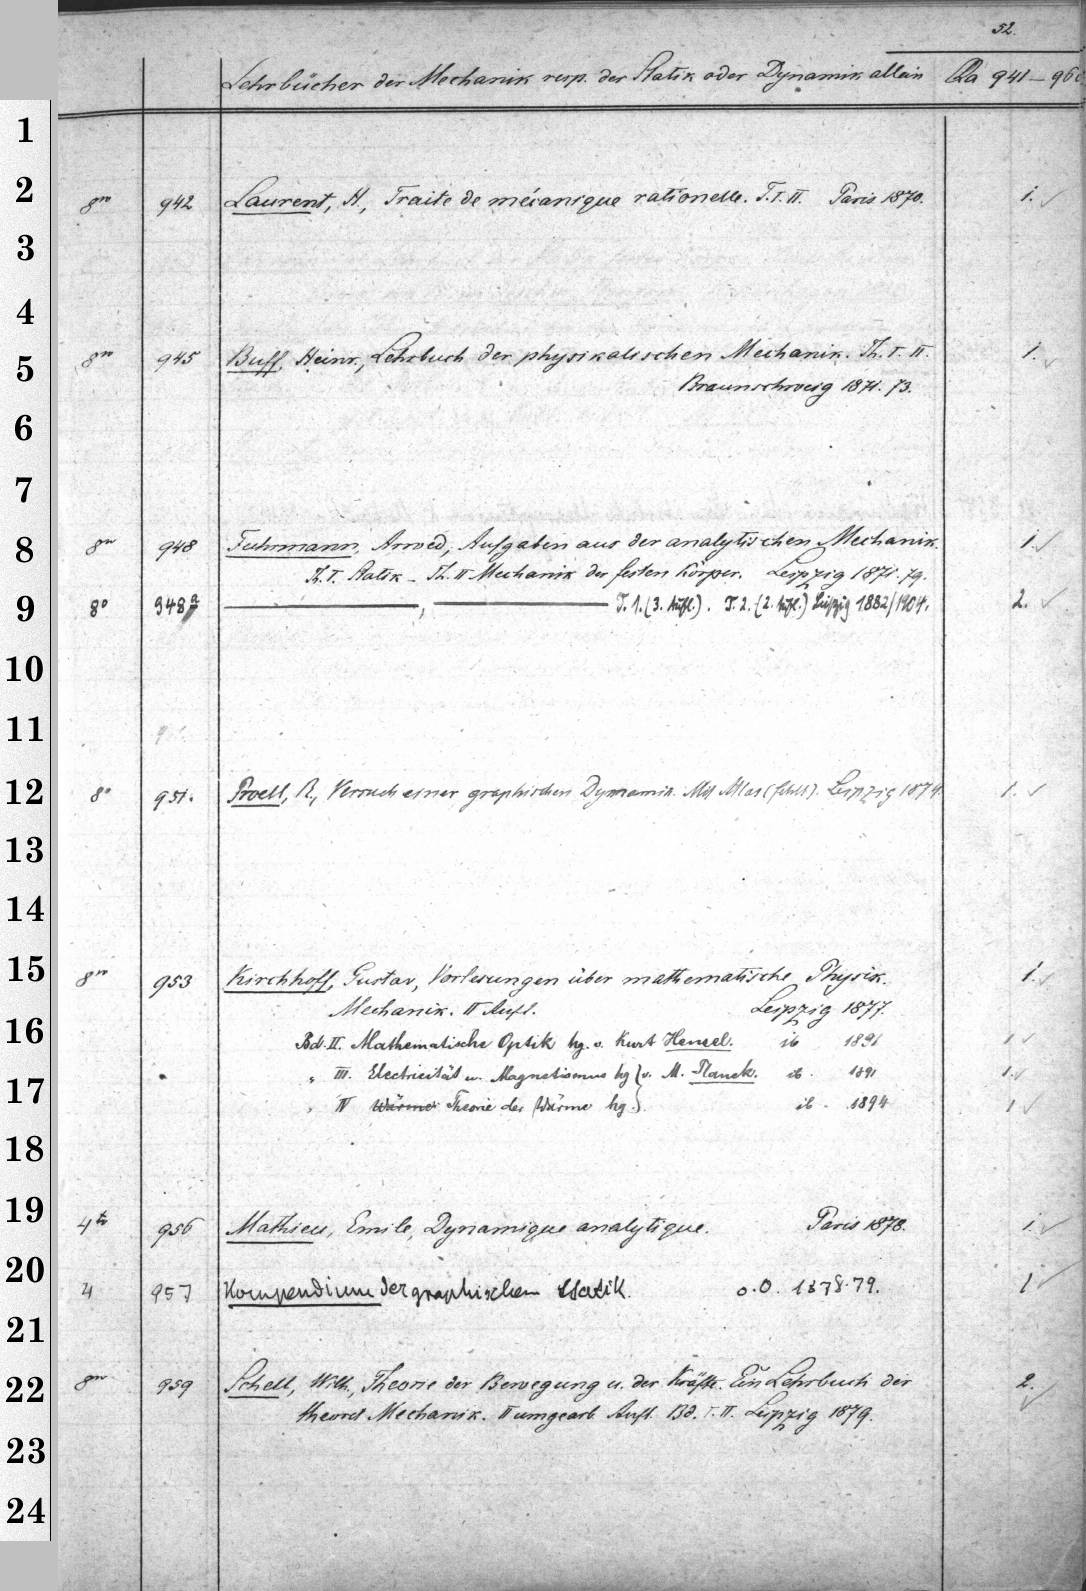 52.
Lehrbücher der Mechanik resp. der Statik oder Dynamik allein Qa 941–960
1
2 8vo 942 Laurent, H., Traite de mécanique rationelle. T. I. II. Paris 1870. 1.
3
4
5 8vo 945 Buff, Heinr., Lehrbuch der physikalischen Mechanik. Th. I. II. 1.
Braunschweig 1871. 73.
6
7
8 8vo 948 Fuhrmann, Arwed, Aufgaben aus der analytischen Mechanik. 1.
Th. I. Statik – Th. II Mechanik der festen Körper. Leipzig 1871. 79.
9 8° 948a ———, ——— T. 1. (3. Aufl.). T. 2. (2. Aufl.) Leipzig 1882/1904. 2.
10
11
12 8° 951. Proell, R., Versuch einer graphischen Dynamik. Mit Atlas (fehlt). Leipzig 1874. 1.
13
14
15 8vo 953 Kirchhoff, Gustav, Vorlesungen über mathematische Physik. 1.
Mechanik. II Aufl. Leipzig 1877.
16 Bd. II. Mathematische Optik hg. v. Kurt Hensel. ib 1891 1
17 „ III. Electricität u. Magnetismus hg } v. M. Planck. ib. 1891 1.
„ IV Wärme Theorie der Wärme hg. } ib. 1894 1
18
19 4to 956 Mathieu, Emile, Dynamique analytique. Paris 1878. 1.
20 4 957 Kompendium der graphischen Statik. o.O. 1878.79. 1
21
22 8vo 959 Schell, Wilh., Theorie der Bewegung u. der Kräfte. Ein Lehrbuch der 2.
theoret Mechanik. II umgearb. Aufl. Bd. I. II. Leipzig 1879.
23
24